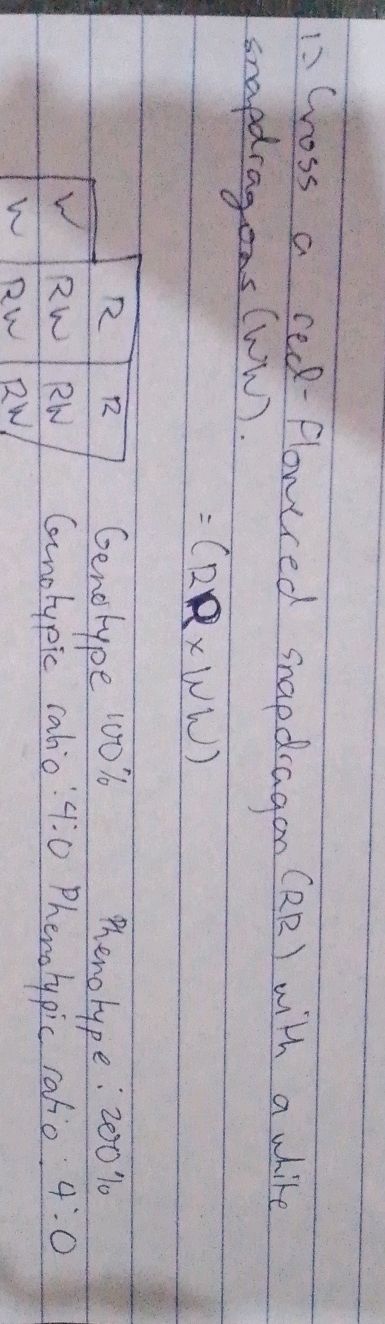 1) Cross a red-flowered snapdragon (RR) with a white
snapdragons (WW).
= (RR x WW)
R R
W RW RW
W RW RW
Genotype 100% Phenotype: 200%
Genotypic ratio: 4:0 Phenotypic ratio: 4:0